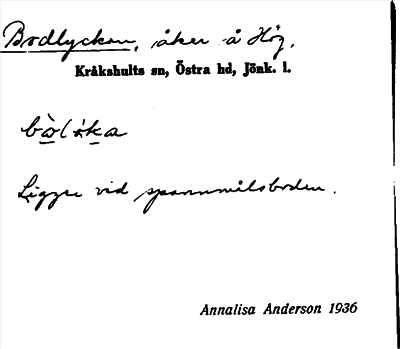 Bodlyckan, åker å Hög.
Kråkshults sn, Östra hd, Jönk. l.
Ligger vid spannmålsboden.
Annalisa Anderson 1936